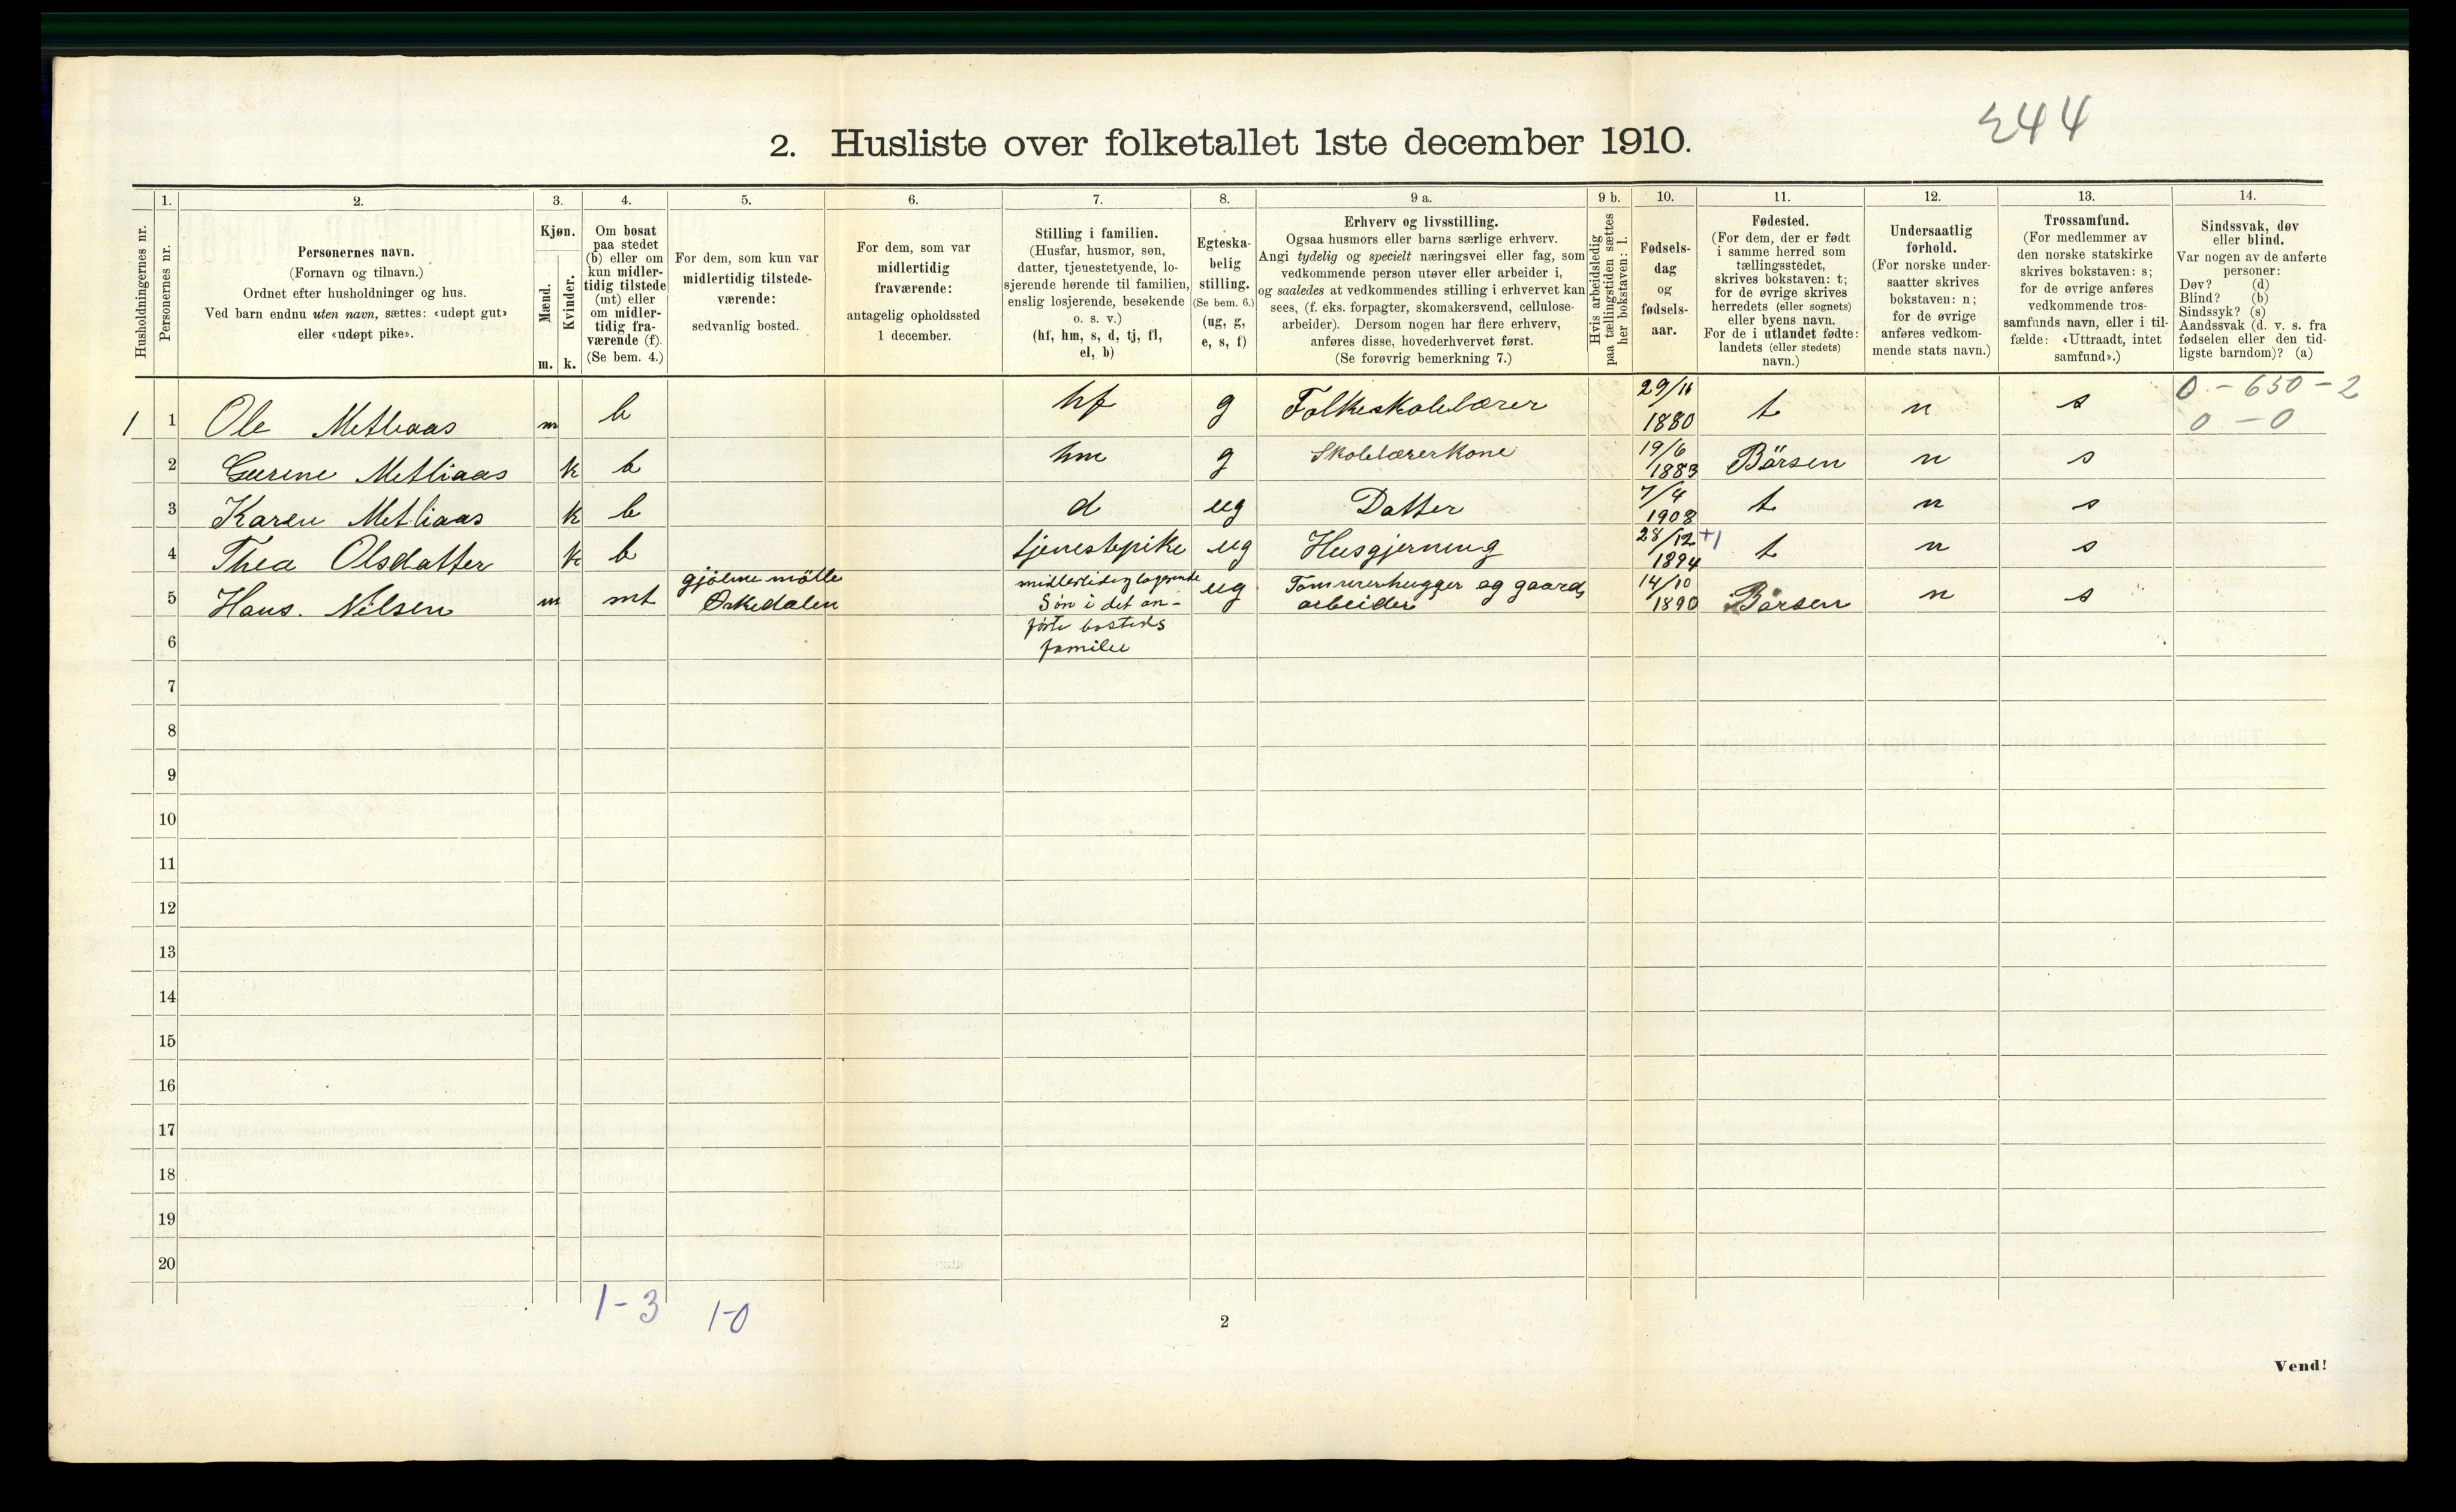 244
2. Husliste over folketallet 1ste december 1910.
1. 2. 3. 4. 5. 6. 7. 8. 9 a. 9 b. 10. 11. 12. 13. 14.
Husholdningernes nr.
Personernes nr.
Personernes navn.
(Fornavn og tilnavn.)
Ordnet efter husholdninger og hus.
Ved barn endnu uten navn, sættes: «udøpt gut»
eller «udøpt pike».
Kjøn.
Mænd.
Kvinder.
m. k.
Om bosat
paa stedet
(b) eller om
kun midler-
tidig tilstede
(mt) eller
om midler-
tidig fra-
værende (f).
(Se bem. 4.)
For dem, som kun var
midlertidig tilstede-
værende:
sedvanlig bosted.
For dem, som var
midlertidig
fraværende:
antagelig opholdssted
1 december.
Stilling i familien.
(Husfar, husmor, søn,
datter, tjenestetyende, lo-
sjerende hørende til familien,
enslig losjerende, besøkende
o. s. v.)
(hf, hm, s, d, tj, fl,
el, b)
Egteska-
belig
stilling.
(Se bem. 6.)
(ug, g,
e, s, f)
Erhverv og livsstilling.
Ogsaa husmors eller barns særlige erhverv.
Angi tydelig og specielt næringsvei eller fag, som
vedkommende person utøver eller arbeider i,
og saaledes at vedkommendes stilling i erhvervet kan
sees, (f. eks. forpagter, skomakersvend, cellulose-
arbeider). Dersom nogen har flere erhverv,
anføres disse, hovederhvervet først.
(Se forøvrig bemerkning 7.)
Hvis arbeidsledig
paa tællingstiden sættes
her bokstaven: l.
Fødsels-
dag
og
fødsels-
aar.
Fødested.
(For dem, der er født
i samme herred som
tællingsstedet,
skrives bokstaven: t;
for de øvrige skrives
herredets (eller sognets)
eller byens navn.
For de i utlandet fødte:
landets (eller stedets)
navn.)
Undersaatlig
forhold.
(For norske under-
saatter skrives
bokstaven: n;
for de øvrige
anføres vedkom-
mende stats navn.)
Trossamfund.
(For medlemmer av
den norske statskirke
skrives bokstaven: s;
for de øvrige anføres
vedkommende tros-
samfunds navn, eller i til-
fælde: «Uttraadt, intet
samfund».)
Sindssvak, døv
eller blind.
Var nogen av de anførte
personer:
Døv? (d)
Blind? (b)
Sindssyk? (s)
Aandssvak (d. v. s. fra
fødselen eller den tid-
ligste barndom)? (a)
0 - 650 - 2
0 - 0
1 1 Ole Metliaas m b hf g Folkeskolelærer 29/11 1880 t n s
2 Gurine Metliaas k b hm g Skolelærerkone 19/6 1883 Börsen n s
3 Karen Metliaas k b d ug Datter 7/4 1908 t n s
4 Thea Olsdatter k b tjenestepike ug Husgjerning 28/12 1894 +1 t n s
5 Hans. Nilsen m mt gjölme mölle Örkedalen midlertidig logerende ug Tömmerhugger og gaards 14/10 1890 Börsen n s
Sön i det an- arbeider
förte bosteds
familie
6
7
8
9
10
11
12
13
14
15
16
17
18
19
20
1-3 1-0
2
Vend!